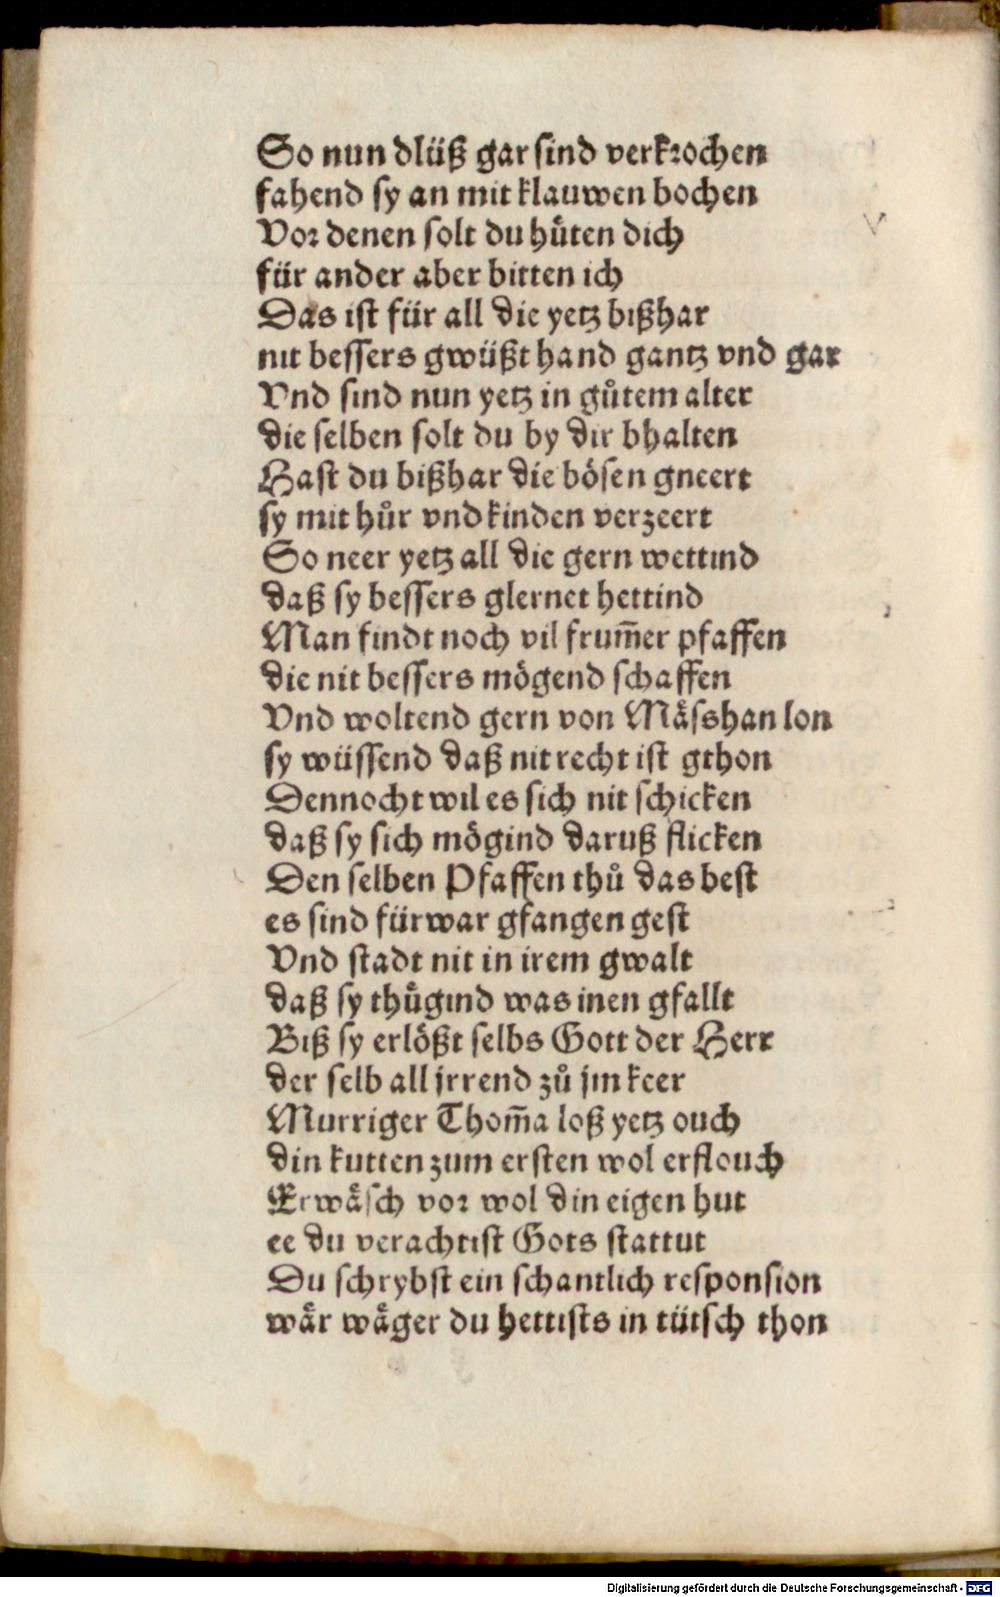 So nun dlüß gar sind verkrochen
fahend sy an mit klauwen bochen
Vor denen solt du hüten dich
für ander aber bitten ich
Das ist für all die yetz bißhar
nit bessers gwüßt hand gantz vnd gar
Vnd sind nun yetz in gůtem alter
die selben solt du by dir bhalten
Hast du bißhar die bösen gneert
sy mit hůr vnd kinden verzeert
So neer yetz all die gern wettind
daß sy bessers glernet hettind
Man findt noch vil frum̄er pfaffen
die nit bessers mögend schaffen
Vnd woltend gern von Mäss han lon
sy wüssend daß nit recht ist gthon
Dennocht wil es sich nit schicken
daß sy sich mögind daruß flicken
Den selben Pfaffen thů das best
es sind fürwar gfangen gest
Vnd stadt nit in irem gwalt
daß sy thügind was inen gfallt
Biß sy erlößt selbs Gott der Herr
der selb all jrrend zů jm keer
Murriger Thom̄a loß yetz ouch
din kutten zum ersten wol erflouch
Erwäsch vor wol din eigen hut
ee du verachtist Gots stattut
Du schrybst ein schantlich responsion
wär wäger du hettists in tütsch thon
Digitalisierung gefördert durch die Deutsche Forschungsgemeinschaft - DFG